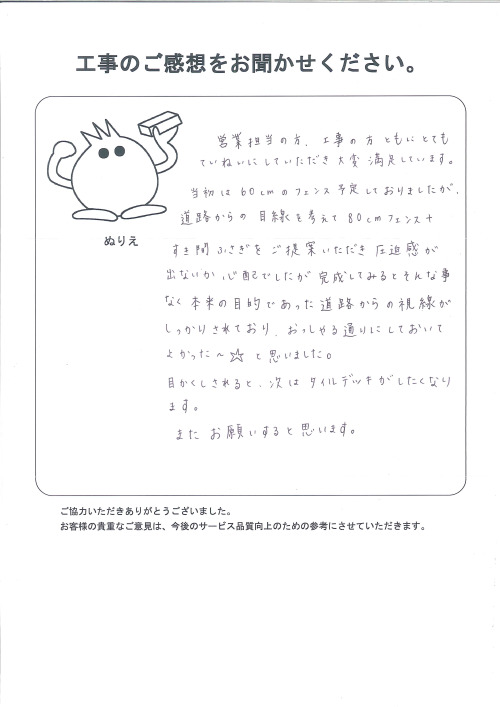 工事のご感想をお聞かせください。
営業担当の方、工事の方ともにとても
ていねいにしていただき大変満足しています。
当初は60cmのフェンス予定しておりましたが、
道路からの目線を考えて80cmフェンス+
すき間ふさぎをご提案いただき圧迫感が
出ないか心配でしたが完成してみるとそんな事
なく本来の目的であった道路からの視線が
しっかりされており、おっしゃる通りにしておいて
よかった～☆と思いました。
目かくしされると、次はタイルデッキがしたくなり
ます。
またお願いすると思います。
ぬりえ
ご協力いただきありがとうございました。
お客様の貴重なご意見は、今後のサービス品質向上のための参考にさせていただきます。